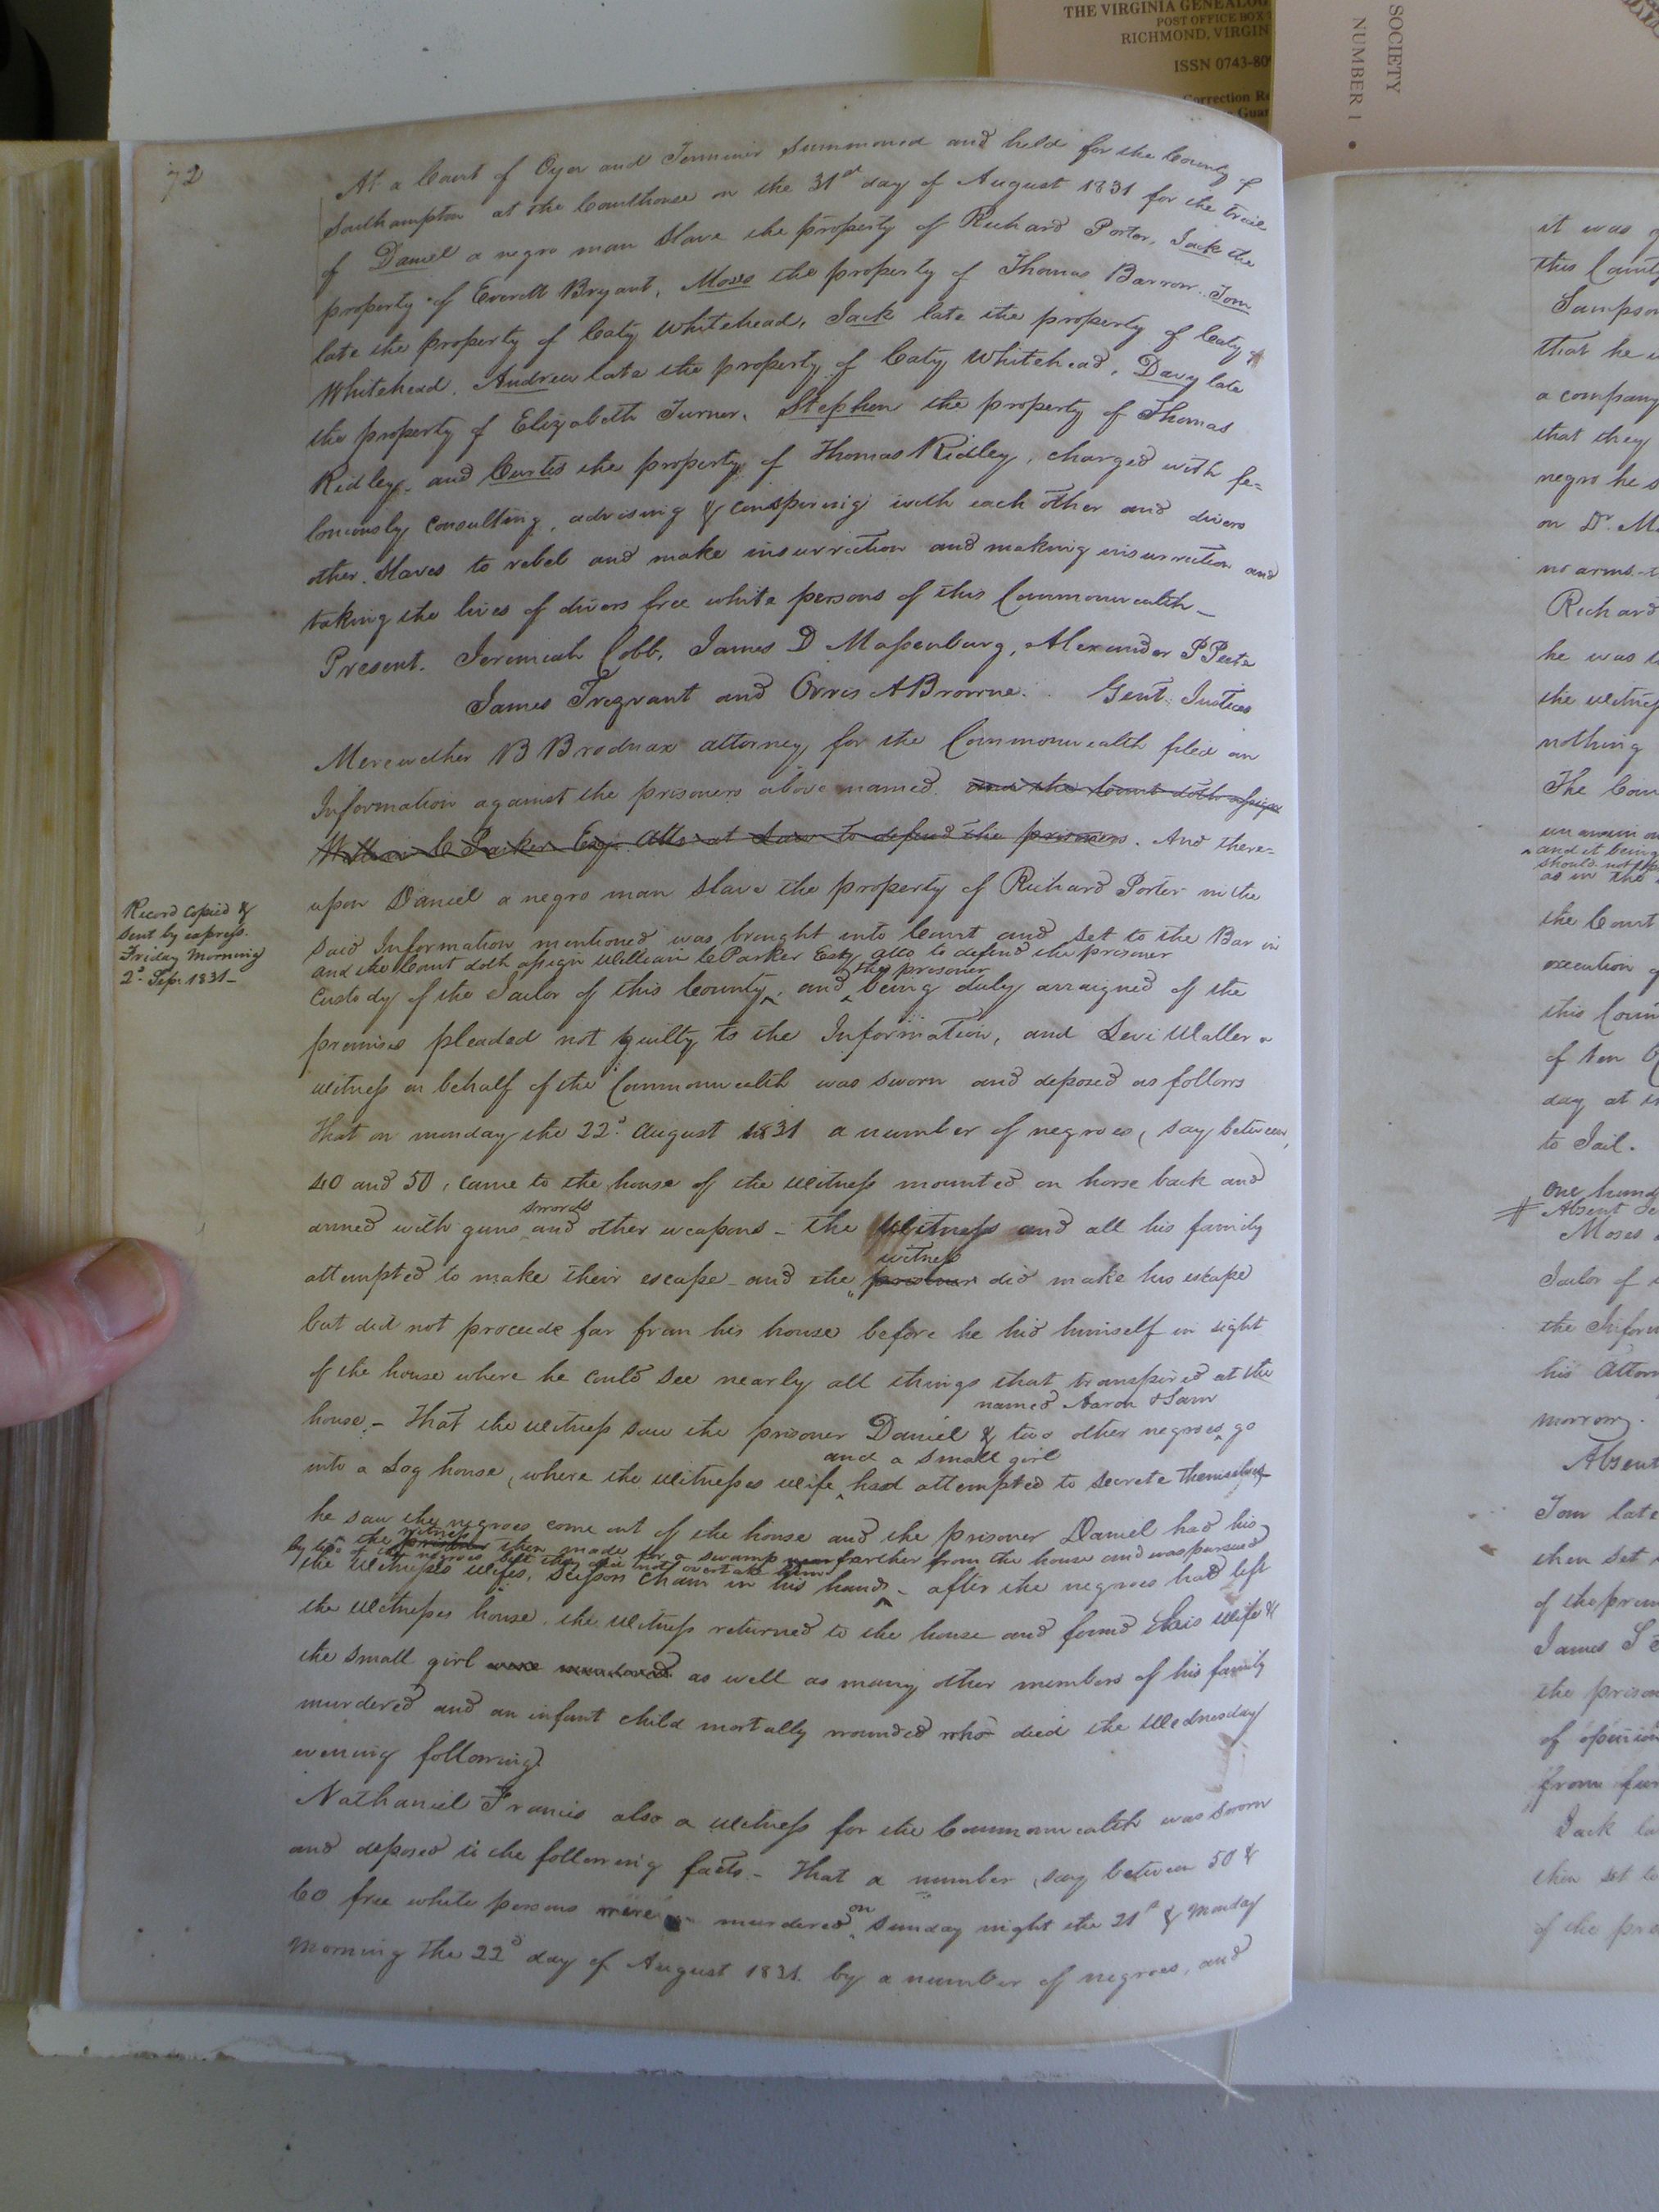 THE VIRGINIA GENEALOG
POST OFFICE BOX
RICHMOND, VIRGIN
ISSN 0743-80
Correction R
Guar
SOCIETY
NUMBER 1 •
72
At a Court of Oyer and Terminer summoned and held for the County of
Southampton at the Courthouse on the 31st day of August 1831 for the trial
of Daniel a negro man slave the property of Richard Porter, Jack the
property of Everett Bryant, Moses the property of Thomas Barrow. Tom
late the property of Caty Whitehead, Jack late the property of Caty
Whitehead. Andrew late the property of Caty Whitehead, Davy late
the property of Elizabeth Turner. Stephen the property of Thomas
Ridley. and Curtis the property of Thomas Ridley, charged with fe=
loniously consulting, advising & conspiring with each other and divers
other slaves to rebel and make insurrection and making insurrection and
taking the lives of divers free white persons of this Commonwealth_
Present. Jeremiah Cobb, James D Massenburg, Alexander P Peete
James Trezvant and Orris A Browne. Gent: Justices
Merewether B Brodnax attorney for the Commonwealth filed an
Information against the prisoners above named. and the Court doth assign
William C Parker Esqr. Atto at Law to defend the prisoners. And there=
upon Daniel a negro man slave the property of Richard Porter in the
said Information mentioned was brought into Court and set to the Bar in
and the Court doth assign William C Parker Esq atto to defend the prisoner
the prisoner
custody of the Jailor of this County, and being duly arraigned of the
premises pleaded not guilty to the Information, and Levi Waller a
witness on behalf of the Commonwealth was sworn and deposed as follows
Record copied &
sent by express.
Friday Morning
2d Sepr 1831_
That on monday the 22d. August 1831 a number of negroes, say between
40 and 50, came to the house of the witness mounted on horse back and
swords
armed with guns and other weapons - the witness and all his family
witness
attempted to make their escape - and the prisoner did make his escape
but did not proceede far from his house before he hid himself in sight
of the house where he could see nearly all things that transpired at the
named Aaron & Sam
house - That the witness saw the prisoner Daniel & two other negroes go
and a small girl
into a Log house, where the witnesses wife had attempted to secrete themselves
he saw the negroes come out of the house and the prisoner Daniel had his
witness
the prisoner then made for a swamp farther from the house and was pursued
by two of the negroes but they did not overtake him
the witnesses wifes, scissors chain in his hand - after the negroes had left
the witnesses house. the witness returned to the house and found his wife &
the small girl were murdered as well as many other members of his family
murdered and an infant child mortally wounded who died the Wednesday
evening following.
Nathaniel Francis also a witness for the Commonwealth was sworn
and deposed to the following facts - That a number, say between 50 &
on
60 free white persons were murdered sunday night the 21st & Monday
morning the 22d day of August 1831. by a number of negroes, and
it was
this County
Sampson
that he
a company
that they
negro he s
on Dr. M
no arms.
Richard
he was
the witness
nothing
The Cou
and it being
should not
as in the
the Court
execution
this Coun
of ten
day at
to Jail.
One hund
Absent
Moses
Jailor of
the Inform
his Attor
morrow.
Absent
Tom late
then set
of the prem
James S
the prison
of opinion
from fur
Jack la
then set to
of the pre